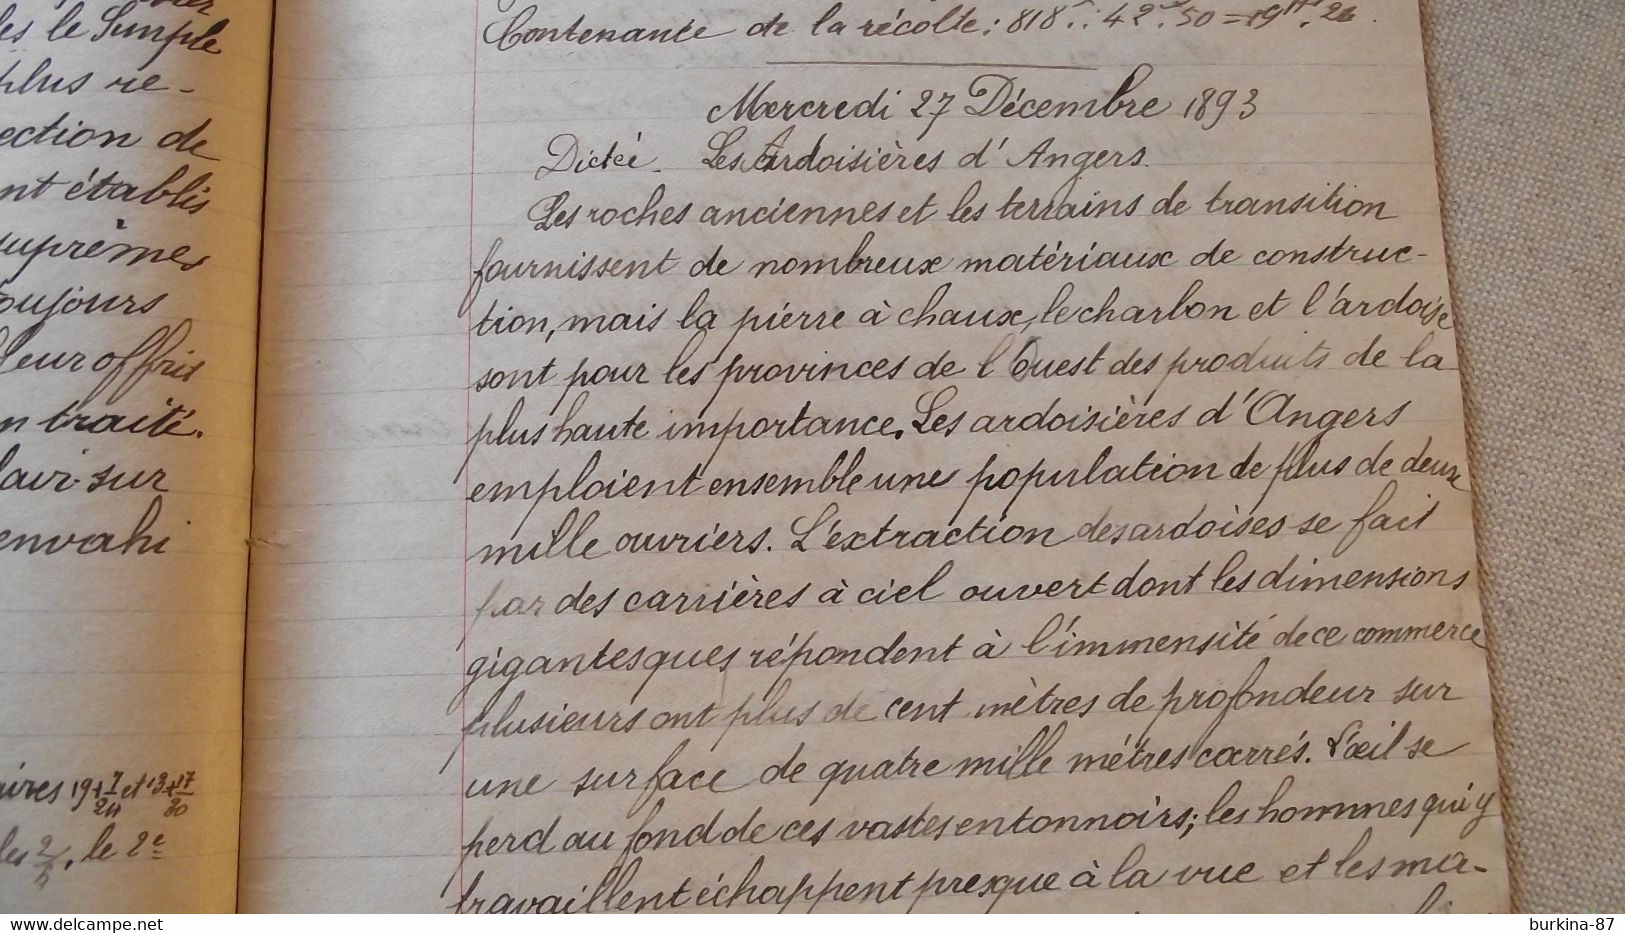 les le Simple
plus re-
ection de
nt établis
suprêmes
toujours
leur offrit
n traité.
sur
envahi
aires 19+7/24 et 13+17/30
les 2/4, le 2e
Contenance de la récolte : 818 : 42.50 = 19
Mercredi 27 Décembre 1893
Dictée. Les Ardoisières d'Angers.
Les roches anciennes et les terrains de transition
fournissent de nombreux matériaux de construc-
tion, mais la pierre à chaux, le charbon et l'ardoise
sont pour les provinces de l'Ouest des produits de la
plus haute importance. Les ardoisières d'Angers
emploient ensemble une population de plus de deux
mille ouvriers. L'extraction des ardoises se fait
par des carrières à ciel ouvert dont les dimensions
gigantesques répondent à l'immensité de ce commerce
plusieurs ont plus de cent mètres de profondeur sur
une surface de quatre mille mètres carrés. L'œil se
perd au fond de ces vastes entonnoirs; les hommes qui y
travaillent échappent presque à la vue et les ma-
www.delcampe.net
burkina-87